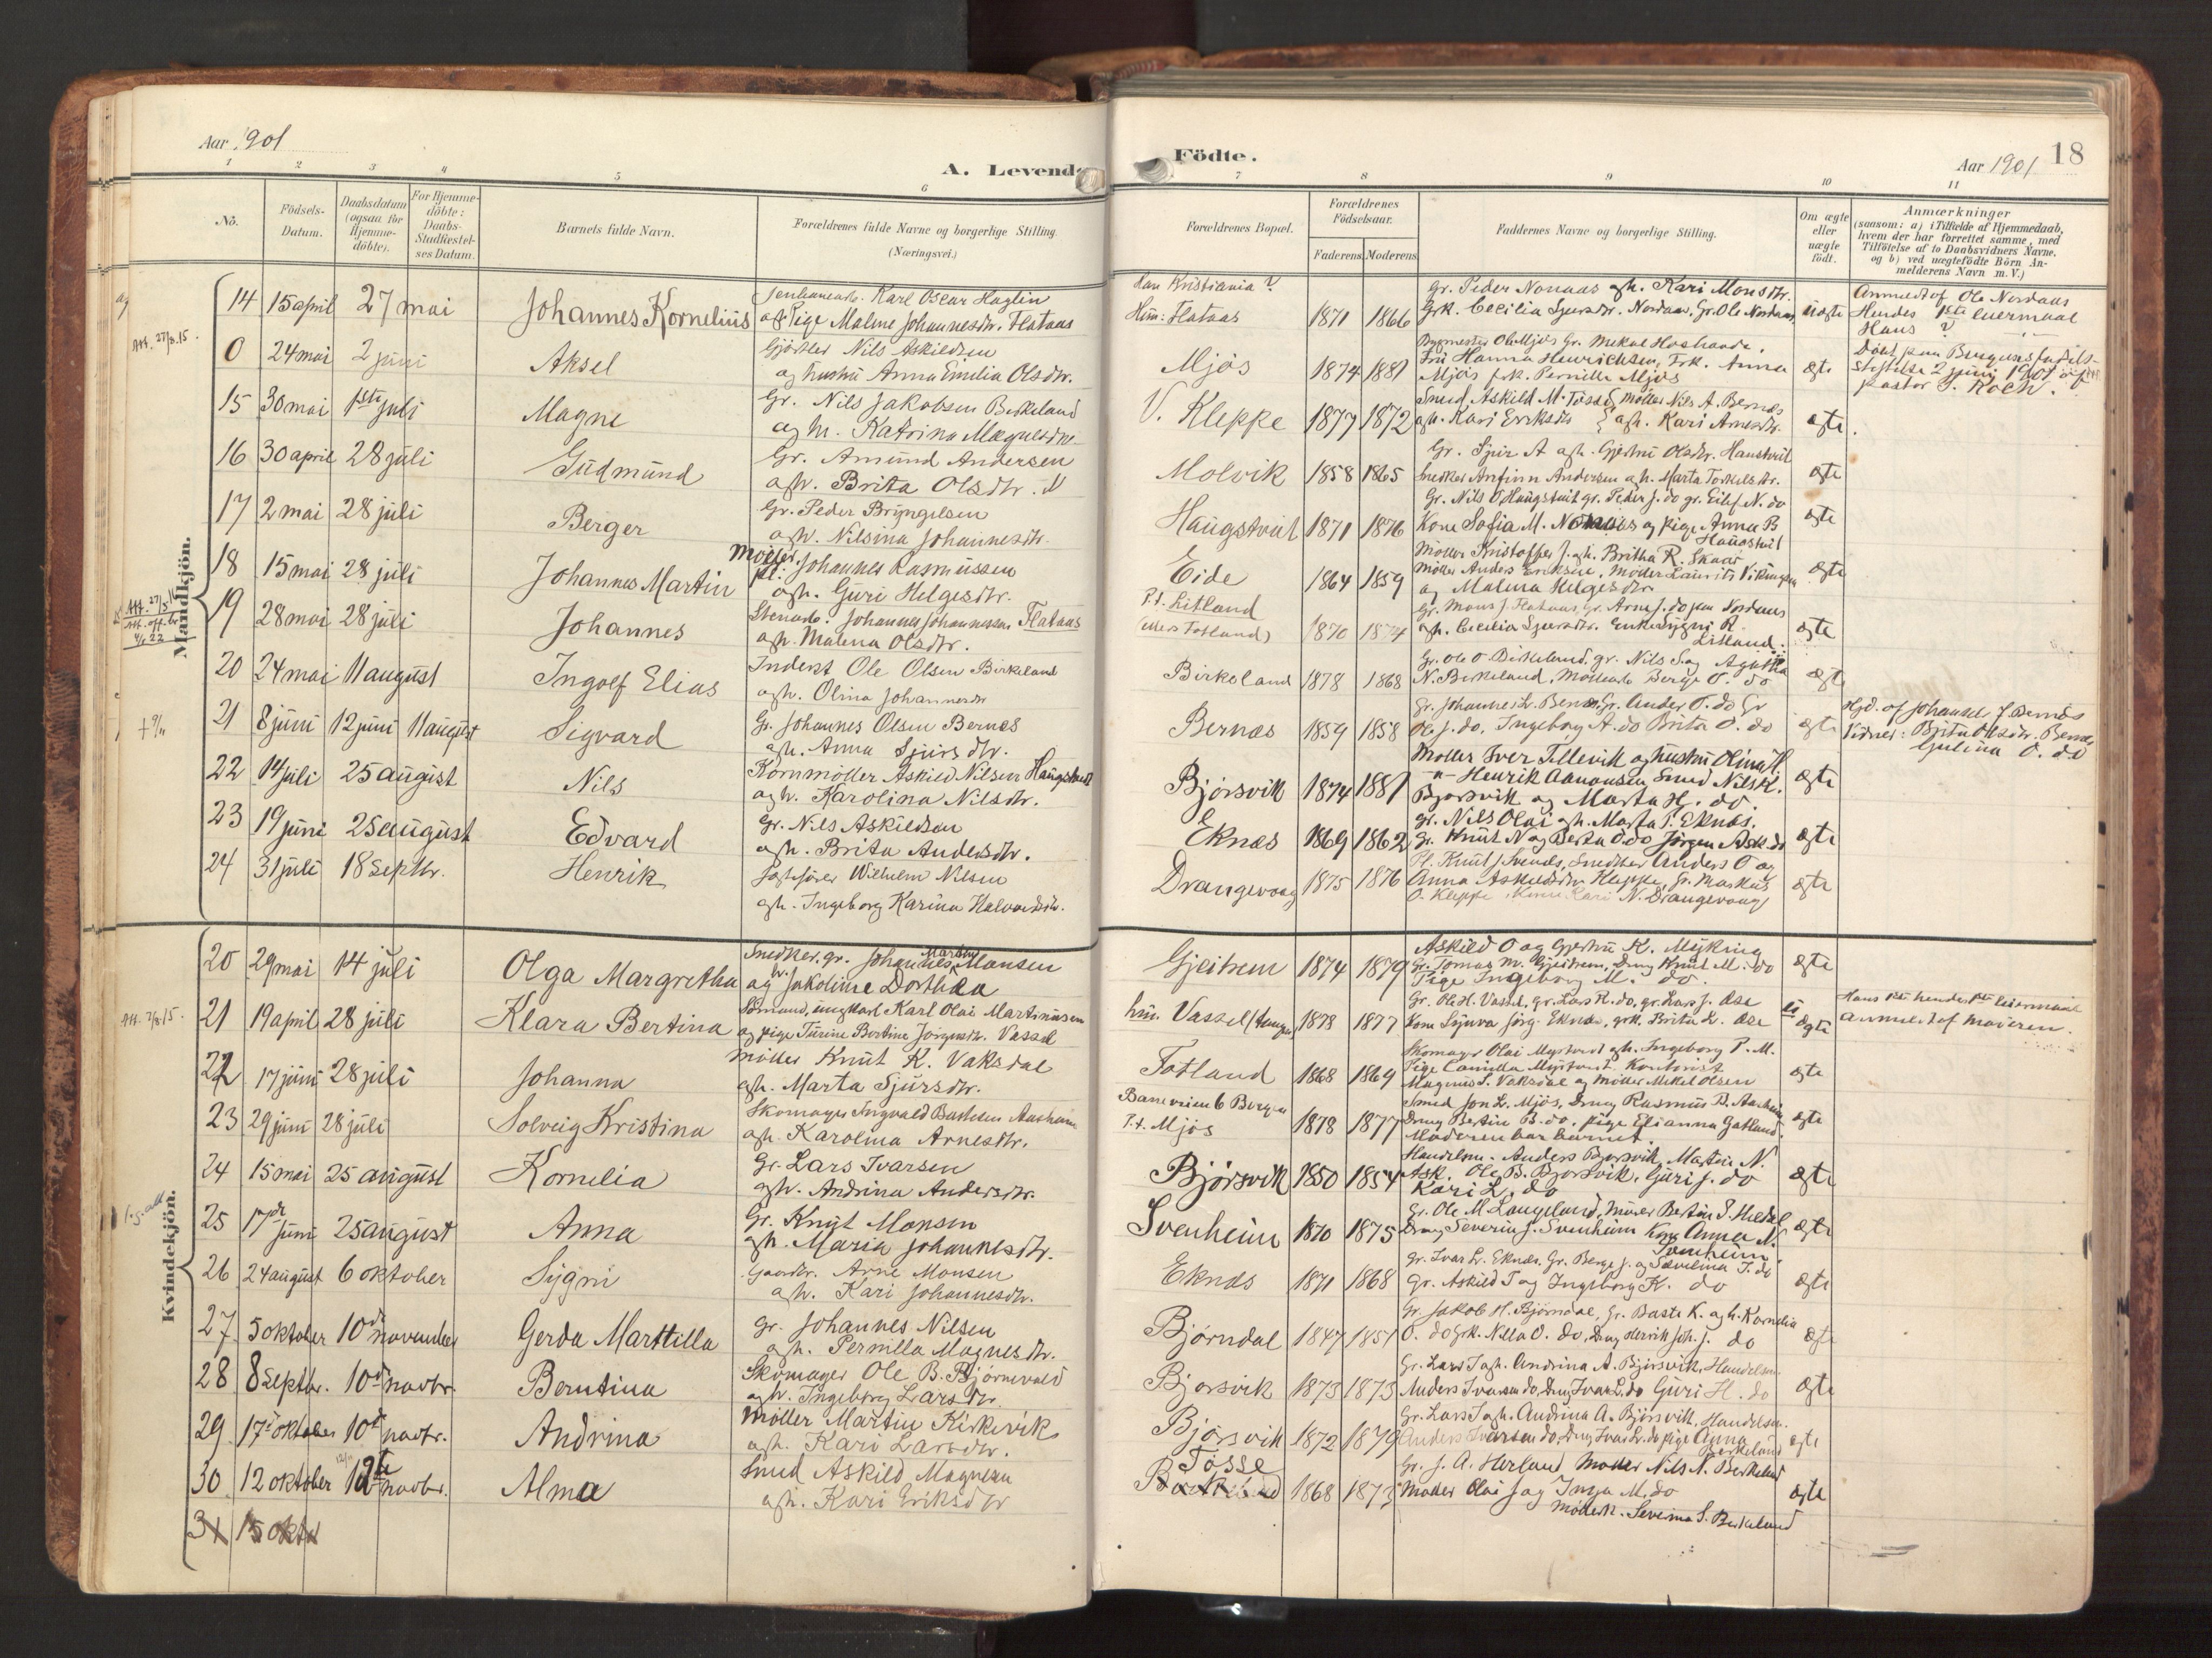 Aar 1901
A. Levende
Födte.
Aar 1901
18
1 2 3 4 5 6
7 8 9 10 11
No.
Födsels-Datum.
Daabsdatum (ogsaa for Hjemme-döbte).
For Hjemme-döbte: Daabs-Stadfæstel-ses Datum.
Barnets fulde Navn.
Forældrenes fulde Navne og borgerlige Stilling.
(Næringsvei.)
Forældrenes Bopæl.
Forældrenes Födselsaar.
Faderens Moderens
Faddernes Navne og borgerlige Stilling.
Om ægte eller uægte födt.
Anmærkninger
(saasom: a) i Tilfælde af Hjemmedaab, hvem der har forrettet samme, med Tilföielse af to Daabsvidners Navne, og b) ved uægtefödte Börn An-melderens Navn m. V.)
Mandkjön.
14 15 april 27 mai Johannes Kornelius
Karl Oscar Haglin
og Pige Malene Johannesdtr. Flataas
Han Kristiania ?
Hun: Flataas 1871 1866
Gr. Peder Nonaas ogh. Kari Monsdtr.
Grk. Cecilia Sjursdtr. Nordaas, Gr. Ole Nordaas
uægte
Anmeldt af Ole Nordaas
Hendes 1ste leiermaal
Hans ?
0 24 mai 2 juni Aksel
Gjörtler Nils Askildsen
og hustru Anna Emilia Olsdtr.
Mjös 1874 1881
Bygmester Ole Mjös Gr. Mikal
Fru Hanna Henrichsen, Frk. Anna
Mjös frk. Pernille Mjös
ægte
Döbt paa Bergens födsels-
stiftelse 2 juni 1901 af
pastor J. Koch.
15 30 mai 1ste juli Magne
Gr. Nils Jakobsen Birkeland
og h. Katrina Magnesdtr
V. Kleppe 1877 1872
Smed Askild M. Tösse, möller Nils A. Bernes
ogh. Kari Eriksdtr ogh. Kari Arnesdtr.
ægte
16 30 april 28 juli Gudmund
Gr. Amund Andersen
ogh. Brita Olsdtr.
Molvik 1858 1865
Gr. Sjur A ogh. Gjertru Olsdtr. Haustveit
Snedker Anfinn Andersen ogh. Marta Torkelsdtr.
ægte
17 2 mai 28 juli Berger
Gr. Peder Bryngelsen
ogh. Nilsina Johannesdtr.
Haugstveit 1871 1876
Gr. Nils O Haugstveit gr. Peder J. do gr. Eilef N. do
Kone Sofia M. Nonaas og pige Anna B
Haugstvit
ægte
18 15 mai 28 juli Johannes Martin
Möller Johannes Rasmussen
ogh. Guri Helgesdtr.
Eide 1864 1859
Möller Kristoffer J. ogh. Britha R. Skaar
Möller Anders Eriksen, Möller Laurits Vikingsen
og Malena Helgesdtr
ægte
19 28 mai 28 juli Johannes
Stenarb. Johannes Johannessen Flataas
ogh. Malena Olsdtr.
P.t. Litland
(ellers Totland) 1870 1874
Gr. Mons J. Flataas, Gr. Arne J. do paa Nordaas
ogh. Cecilia Sjursdtr. Enke Sygni R.
Litland.
ægte
20 24 mai 11 august Ingolf Elias
Inderst Ole Olsen Birkeland
ogh. Olina Johannesdtr
Birkeland 1878 1868
Gr. Ole O. Birkeland, gr. Nils S. og Agatha
N. Birkeland, Möllearb. Berge O. do
ægte
21 8 juni 12 juni 11 august Sigvard
Gr. Johannes Olsen Bernes
ogh. Anna Sjursdtr.
Bernæs 1859 1858
Gr. Johannes L. Bernes, Gr. Anders O. do Gr
Ole J. do, Ingeborg A. do Brita O. do
ægte
Hjd. af Johannes J. Bernæs
Vidner: Brita Olsdtr. Bernæs
Gulina O. do
22 14 juli 25 august Nils
Kornmöller Askild Nilsen Haugstveit
og h. Karolina Nilsdtr.
Björsvik 1874 1881
Möller Iver Tillevik og hustru Olina H
-"- Henrik Aanonsen Smed Nils K.
Bjorsvik og Marta H. do.
ægte
23 19 juni 25 august Edvard
Gr. Nils Askildsen
ogh. Brita Andersdtr.
Eknæs 1869 1862
Gr. Nils Olai ogh. Marta I. Eknæs.
Gr. Knut N og Berta O. do Jörgen Ask. do
ægte
24 31 juli 18 Septbr. Henrik
Wilhelm Nilsen
ogh. Ingeborg Karina Halvordsdtr.
Drangevaag 1875 1876
Pl. Knut J. Svenes, Snedker Anders O og
Anna Askildsdtr Kleppe, Gr. Markus
O. Kleppe, Kone Kari N. Drangevaag
ægte
Kvindekjön.
20 29 mai 14 juli Olga Margretha
Snedker, gr. Johannes Martin Monsen
og hr. Jakobine Dorthea
Gjeitrem 1874 1879
Askild O og Gjertru K. Myking
Gr. Tomas M. Gjeitrem, Drng Knut M. do
Pige Ingeborg M. do.
ægte
21 19 april 28 juli Klara Bertina
Sömand, ungkarl Karl Olai Martinussen
og pige Turine Bertine Jörgensdtr. Vassel
hun. Vassel 1878 1877
Gr. Ole H. Vassel, gr. Lars R. do, gr. Lars J. Ase
Kone Synva Jörg. Eknæs, grk. Brita L. Ase
uægte
Hans 1ste hendes 1ste leiermaal
Anmeldt af moderen.
22 17 juni 28 juli Johanna
Möller Knut K. Vaksdal
ogh. Marta Sjursdtr.
Totland 1868 1869
Skomager Olai Myster ogh. Ingeborg P. M.
Pige Camilla Kontorist
Magnus S. Vaksdal og Möller Mikel Olsen
ægte
23 29 juni 28 juli Solveig Kristina
Skomager Ingvald Aasheim
ogh. Karolina Arnesdtr.
6 Bergen
P.t. Mjös 1878 1877
Smed Jon L. Mjös, Drng Rasmus B. Aasheim
Drng Bertin B. do. pige Elianna Gatland.
Moderen bar barnet.
ægte
24 15 mai 25 august Kornelia
Gr. Lars Ivarsen
ogh. Andrina Andersdtr.
Björsvik 1850 1854
Handelsm. Anders Bjorsvik, Martin N.
Ask. Ole B. Bjorsvik, Guri J. do
Kari L. do
ægte
25 17de juni 25 august Anna
Gr. Knut Monsen
ogh. Maria Johannesdtr.
Svenheim 1870 1875
Gr. Ole M. Langeland, Murer Bertin S. Hesdal
Drng Severin J. Svenheim Kone Anna N.
Svenheim
ægte
26 24 august 6 oktober Sygni
Gaardbr. Arne Monsen
ogh. Kari Johannesdtr.
Eknæs 1871 1868
Gr. Ivar L. Eknæs. Gr. Berge J. og Severina I. do
Gr. Askild I og Ingeborg K. do
ægte
27 5 oktober 10de november Gerda Marttilla
Gr. Johannes Nilsen
ogh. Pernilla Magnesdtr.
Björndal 1847 1851
Gr. Jakob H. Björndal, Gr. Baste K. ogh. Kornelia
O. do Grk. Nilla O. do, Drng Henrik Joh. J. do
ægte
28 8 Septbr. 10de novbr. Berntina
Skomager Ole B. Björnevold
og h. Ingeborg Larsdtr.
Bjorsvik 1873 1873
Gr. Lars I ogh. Andrina A. Bjorsvik, Handelsm.
Anders Ivarsen do, Drng Ivar L. do Guri H. do
ægte
29 17de oktober 10de novbr. Andrina
Möller Martin Kirkevik
ogh. Kari Larsdtr.
Björsvik 1872 1879
Gr. Lars I ogh. Andrina A. Björsvik, Handelsm.
Anders Ivarsen do, Drng Ivar L. do pige Anna
Birkeland
ægte
30 12 oktober 12te novbr. Alma
Smed Askild Magnesen
ogh. Kari Eriksdtr
Tösse
Birkeland 1868 1873
Gr. J. A. Herland Möller Nils N. Birkeland
Möller Olai J og Inga M. do
Möllerk. Severina S. Birkeland
ægte
31 15 oktb